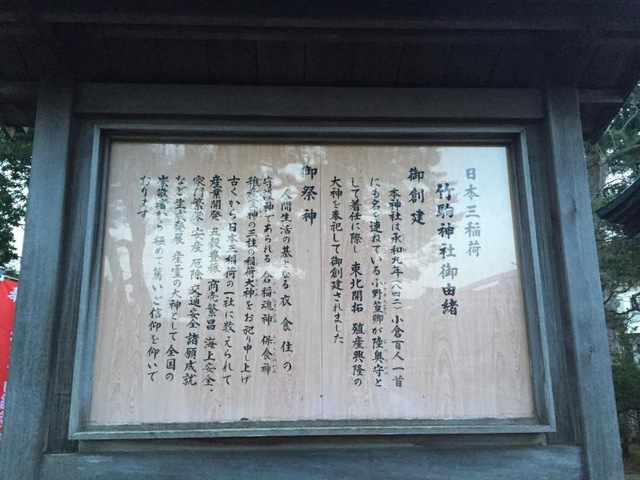 日本三稲荷
竹駒神社御由緒
御創建
本神社は承和九年(八四二)小倉百人一首
にも名を連ねている小野篁卿が陸奥守と
して着任に際し 東北開拓 殖産興隆の
大神を奉祀して御創建されました
御祭神
人間生活の基となる衣 食 住 の
守護神であられる 倉稲魂神 保食神
稚産霊神の三柱の稲荷大神をお祀り申し上げ
古くから日本三稲荷の一社に数えられて
産業開発 五穀豊穣 商売繁昌 海上安全
家内繁栄 安産 厄除 交通安全 諸願成就
など生成発展 産霊の大神として全国の
崇敬者から極めて篤いご信仰を仰いで
おります